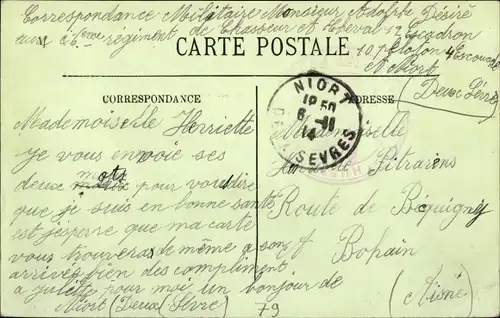 Correspondance Militaire Monsieur Adolphe Désiré
au 6eme regiment de Chasseur a Cheval 5e Escadron
10 Peloton 4 Escouade
CARTE POSTALE
a Niort
(Deux Sèvre)
CORRESPONDANCE
ADRESSE
NIORT
18 50
6 - 11
14
DEUX-SEVRES
Mademoiselle Henriette
Je vous envoie ses
deux mots pour vous dire
que je suis en bonne santé
est j'espere que ma carte
vous trouveras de même a son
arrivés bien des compliment
a Juliette pour moi un bonjour de
Niort (Deux Sèvre)
Mademoiselle
Route de Bequigny
Bohain
(Aisne)
79